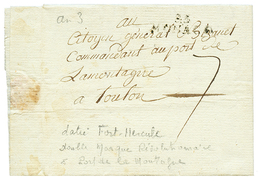 an 3
au
Citoyen général
Commandant au port de
Lamontagne
a Toulon
7
daté Fort-Hercule
double marque Révolutionnaire
& Port de la Montagne